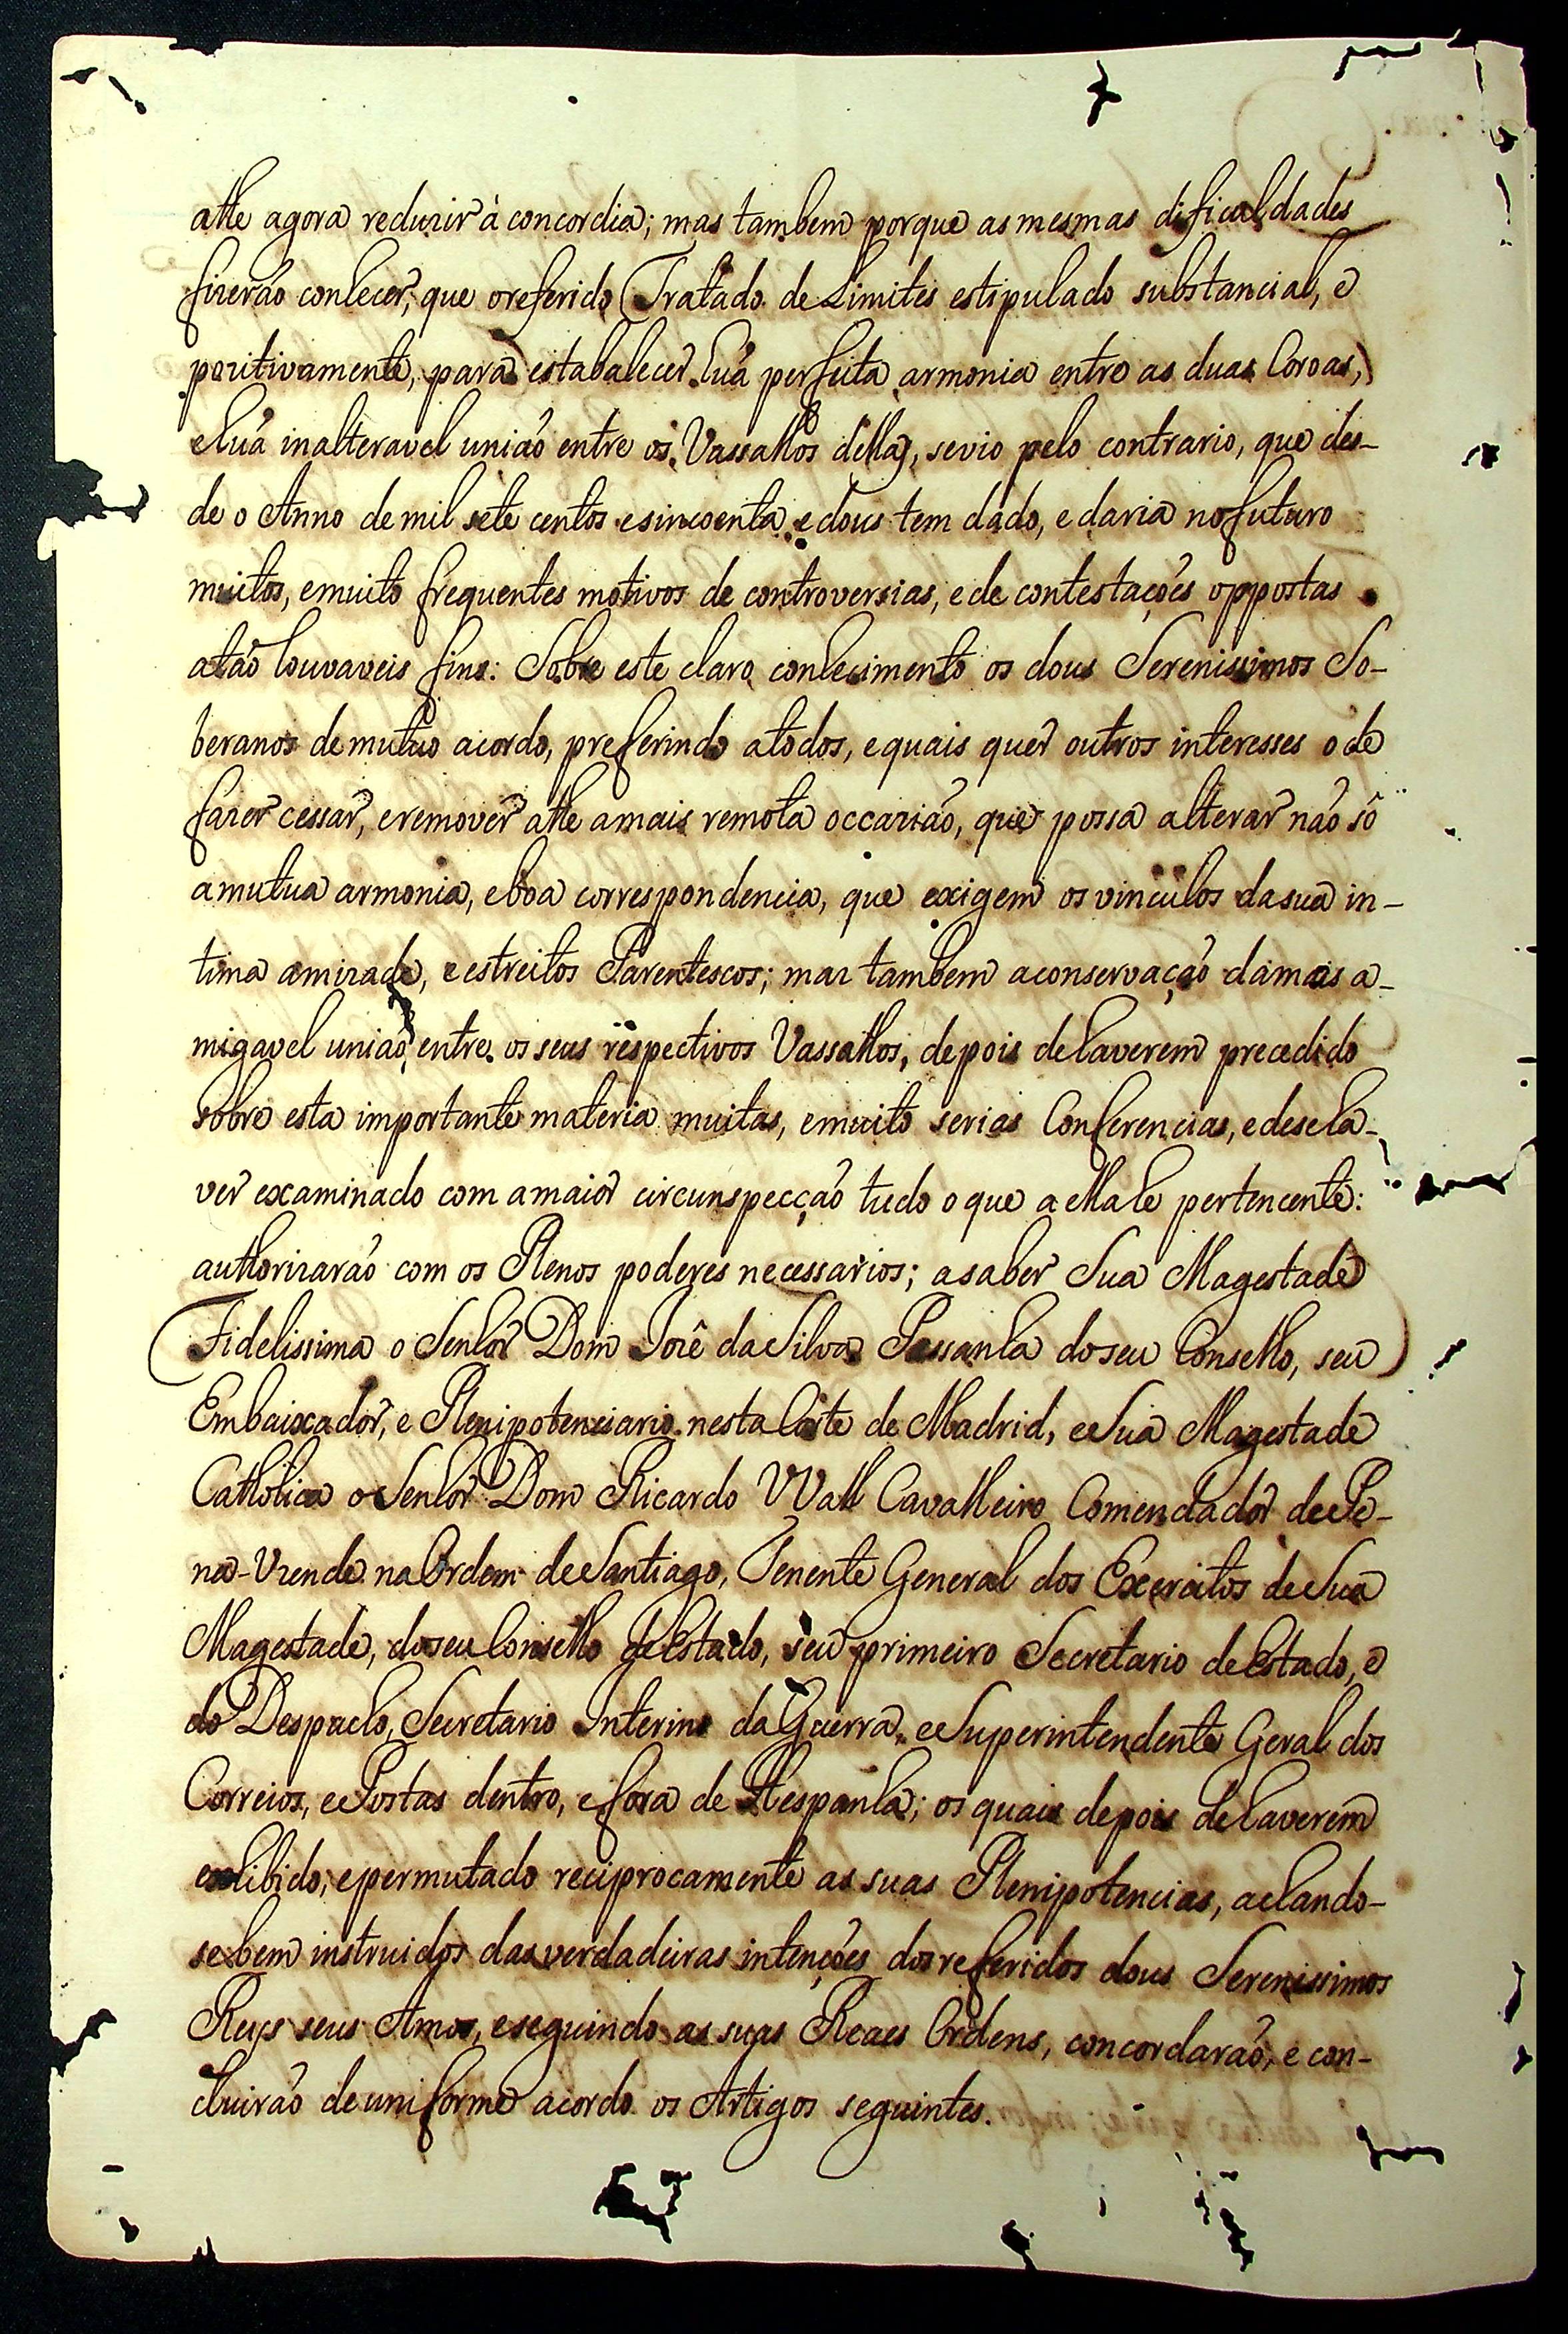 athe agora reduzir à concordia; mas tambem porque as mesmas dificuldades
fizerão conhecer, que o referido Tratado de Limites estipulado substancial, e
pozitivamente, para estabalecer huã perfeita armonia entre as duas Coroas,
e huã inalteravel união entre os Vassallos dellas, se vio pelo contrario, que des-
de o Anno de mil sete centos e sincoenta e dous tem dado, e daria no futuro
muitos, e muito frequentes motivos de controversias, e de contestações oppostas
a tão louvaveis fins: Sobre este claro conhecimento os dous Serenissimos So-
beranos de mutuo acordo, preferindo a todos, e quais quer outros interesses o de
fazer cessar, e remover athe a mais remota occazião, que possa alterar não só
a mutua armonia, e boa correspondencia, que exigem os vinculos da sua in-
tima amizade, e estreitos Parentescos; maz tambem a conservação da mais a-
migavel união entre os seus respectivos Vassallos, depois de haverem precedido
sobre esta importante materia muitas, e muito serias Conferencias, e de se ha-
ver examinado com a maior circunspecção tudo o que a ella he pertencente:
authorizarão com os Plenos poderes necessarios; a saber Sua Magestade
Fidelissima o Senhor Dom Jozê da Silva Pessanha do seu Conselho, seu
Embaixador, e Plenipotenciario nesta Corte de Madrid, e Sua Magestade
Catholica o Senhor Dom Ricardo VVall Cavalleiro Comendador de Pe-
na-Uzende na Ordem de Santiago, Tenente General dos Exercitos de Sua
Magestade, do seu Conselho de Estado, seu primeiro Secretario de Estado, e
do Despacho, Secretario Interino da Guerra, e Superintendente Geral dos
Correios, e Postas dentro, e fora de Hespanha; os quais depois de haverem
exhibido, e permutado reciprocamente as suas Plenipotencias, achando-
se bem instruidos das verdadeiras intenções dos referidos dous Serenissimos
Reys seus Amos, e seguindo as suas Reaes Ordens, concordarão, e con-
cluirão de uniforme acordo os Artigos seguintes.